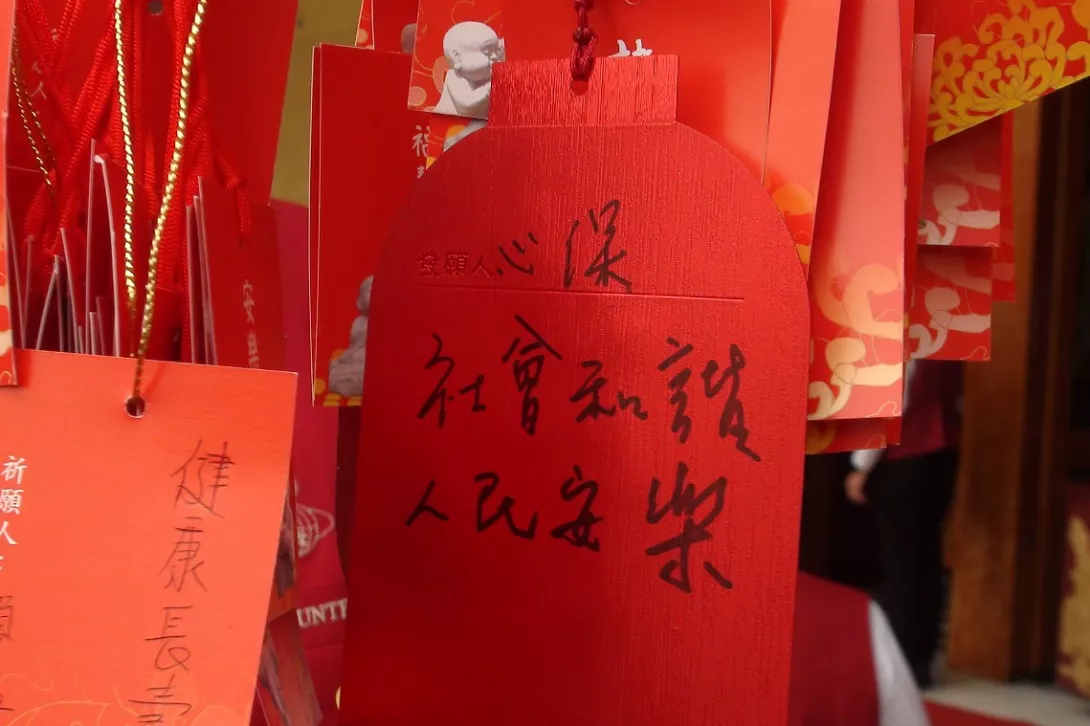 發願人心保
社會和諧
人民安樂
祈願人
健康長壽
UNTE